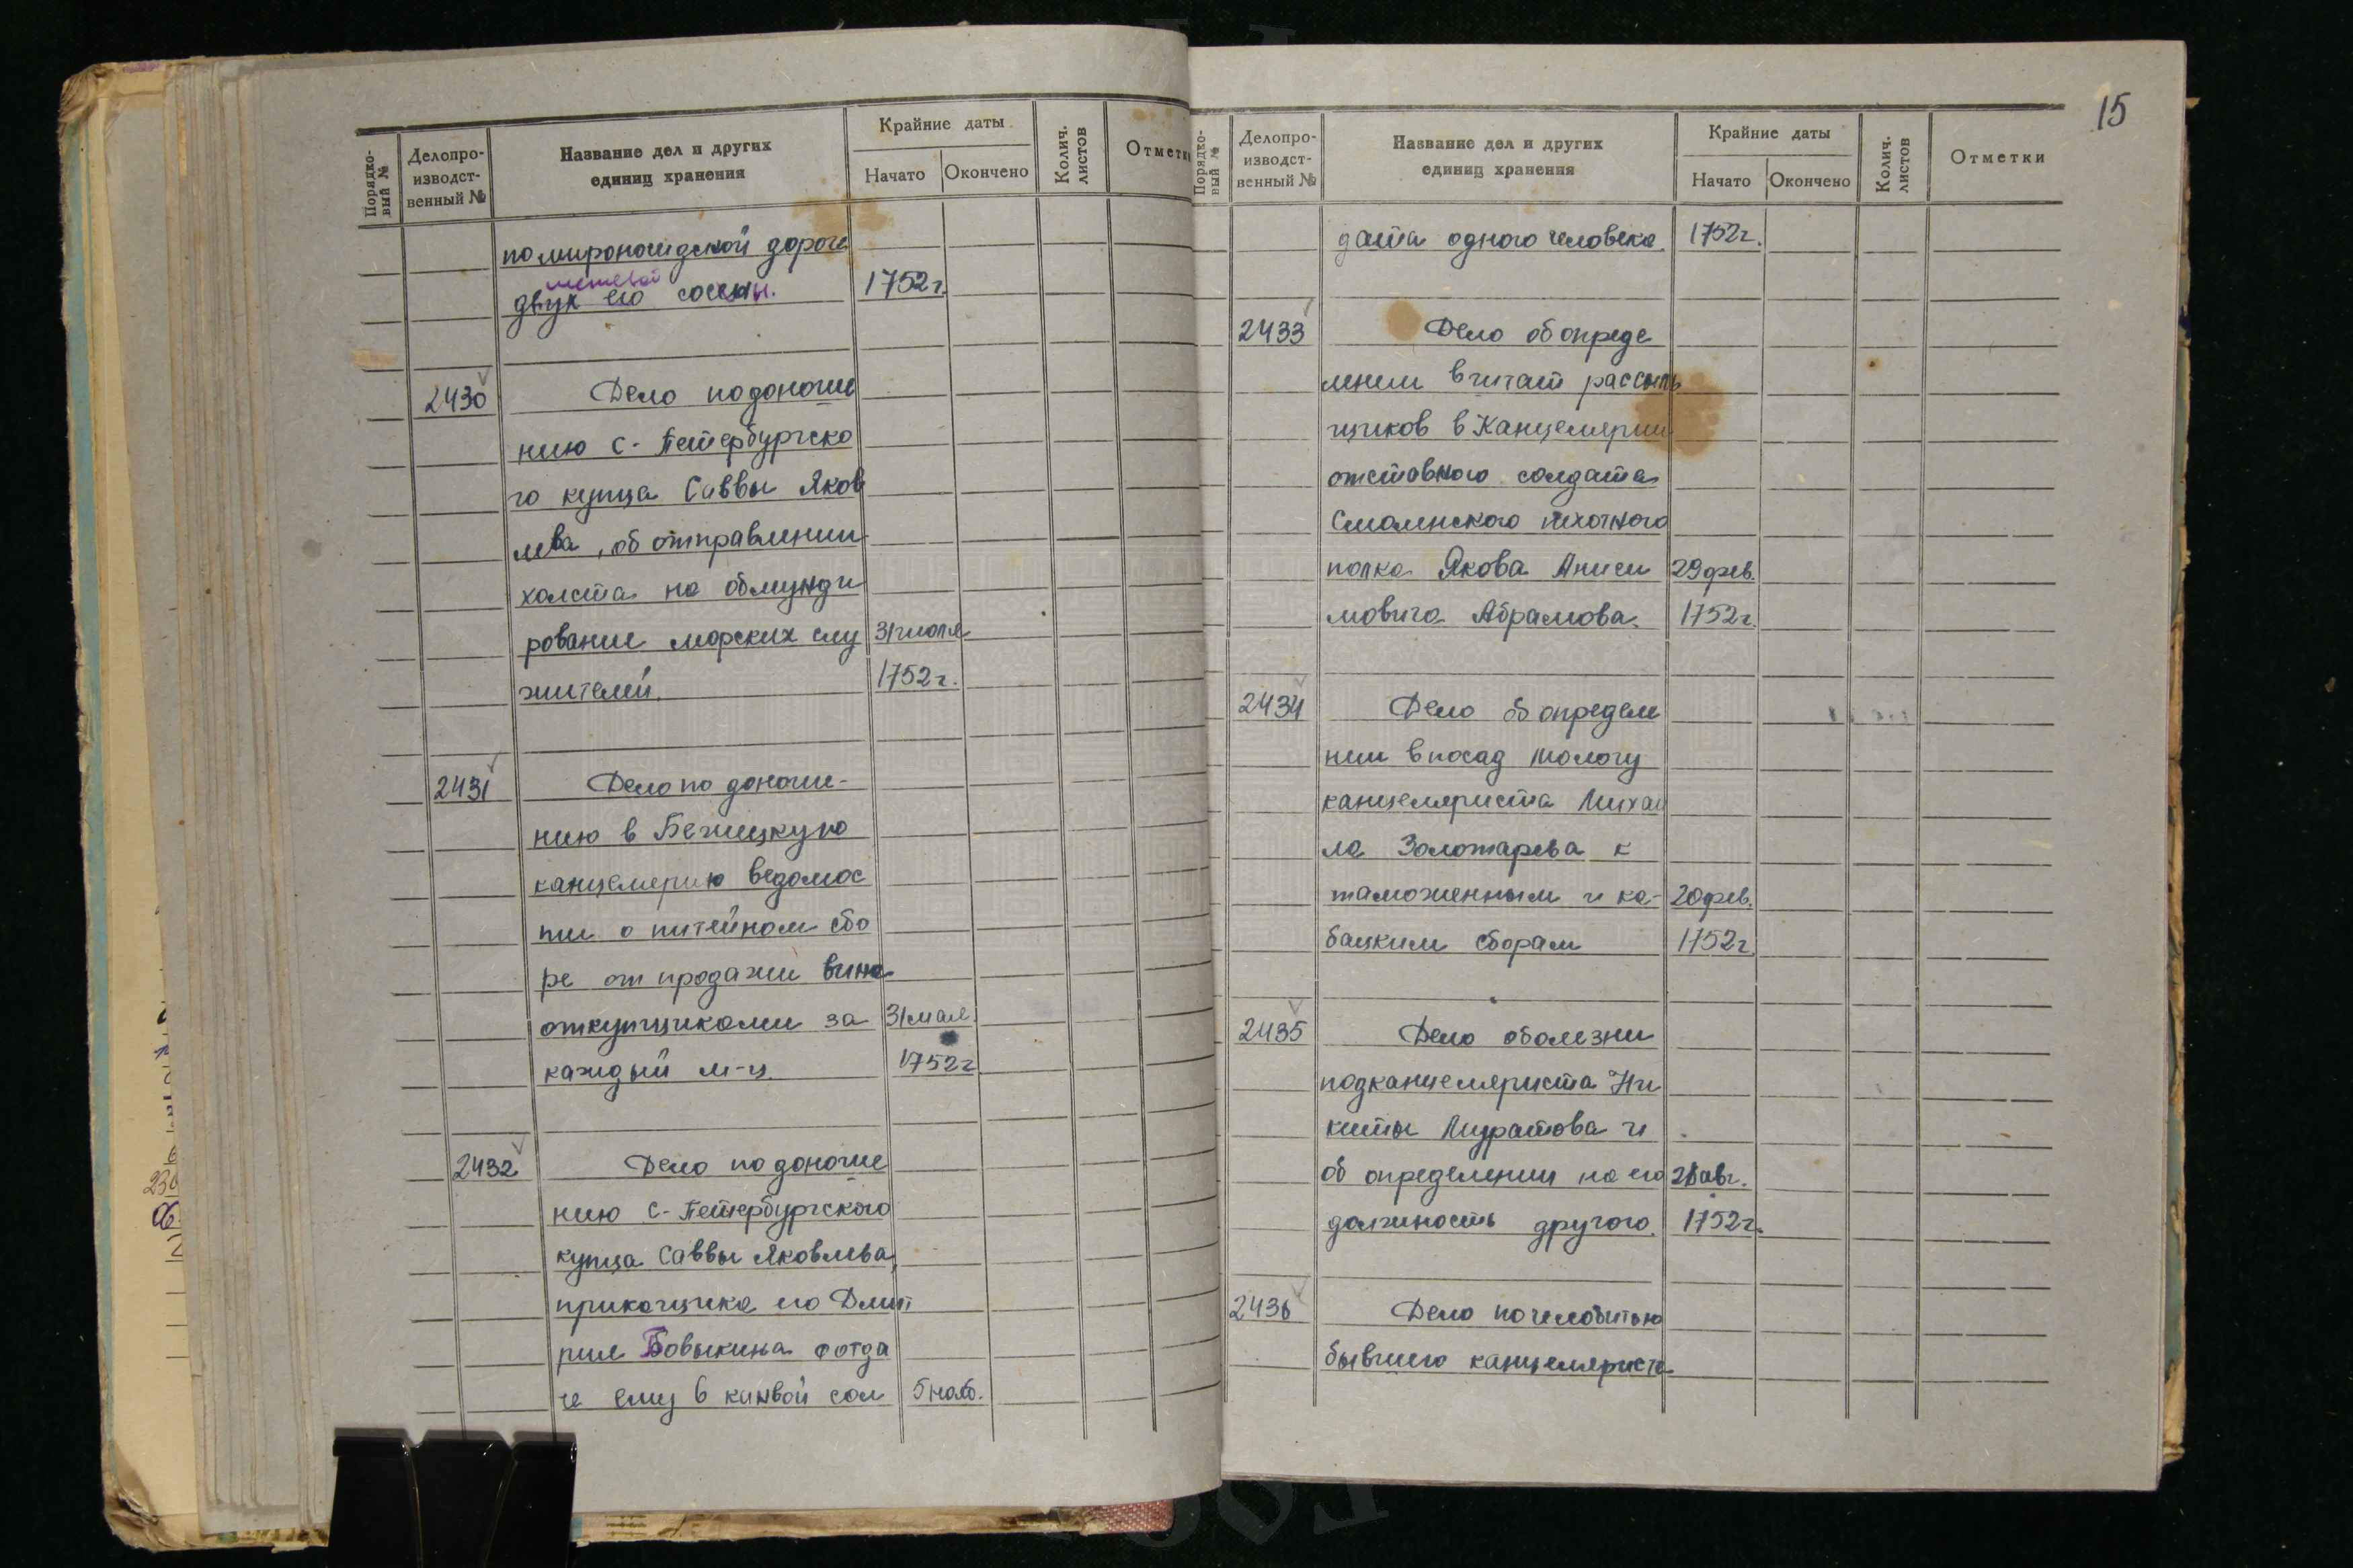 Порядко-
вый №
Делопро-
изводст-
венный №
Название дел и других
единиц хранения
Крайние даты
Начато
Окончено
Колич.
листов
Отметки
по мироносидской дороге
двух его сосены.
1752 г.
2430
Дело по доноше
нию С-Петербургско
го купца Саввы Яков
лева, об отправлении
холста на обмунди
рование морских слу
31 июля
жителей.
1752 г.
2431
Дело по доноше-
нию в Бежецкую
канцелярию ведомос
ти о питейном сбо
ре от продажи вина
откупщиками за
31 мая
каждый м-ц.
1752 г
2432
Дело по доноше
нию С-Петербургского
купца Саввы Яковлева,
прикащика его Дмит
рия Бовыкина о отда
че ему в конвой сол
5 нояб.
15
Порядко-
вый №
Делопро-
изводст-
венный №
Название дел и других
единиц хранения
Крайние даты
Начато
Окончено
Колич.
листов
Отметки
дата одного человека.
1752 г.
2433
Дело об опреде
лении в штат рассыль
щиков в Канцелярии
отставного солдата
Смоленского пехотного
полка Якова Аниси
29 фев.
мовича Абрамова.
1752 г.
2434
Дело об определе
нии в посад Мологу
канцеляриста Михаи
ла Золотарева к
таможенным и ка-
20 фев.
бацким сборам
1752 г.
2435
Дело о болезни
подканцеляриста Ни
киты Муратова и
об определении на его
28 авг.
должность другого.
1752 г.
2436
Дело по челобитью
бывшего канцеляриста